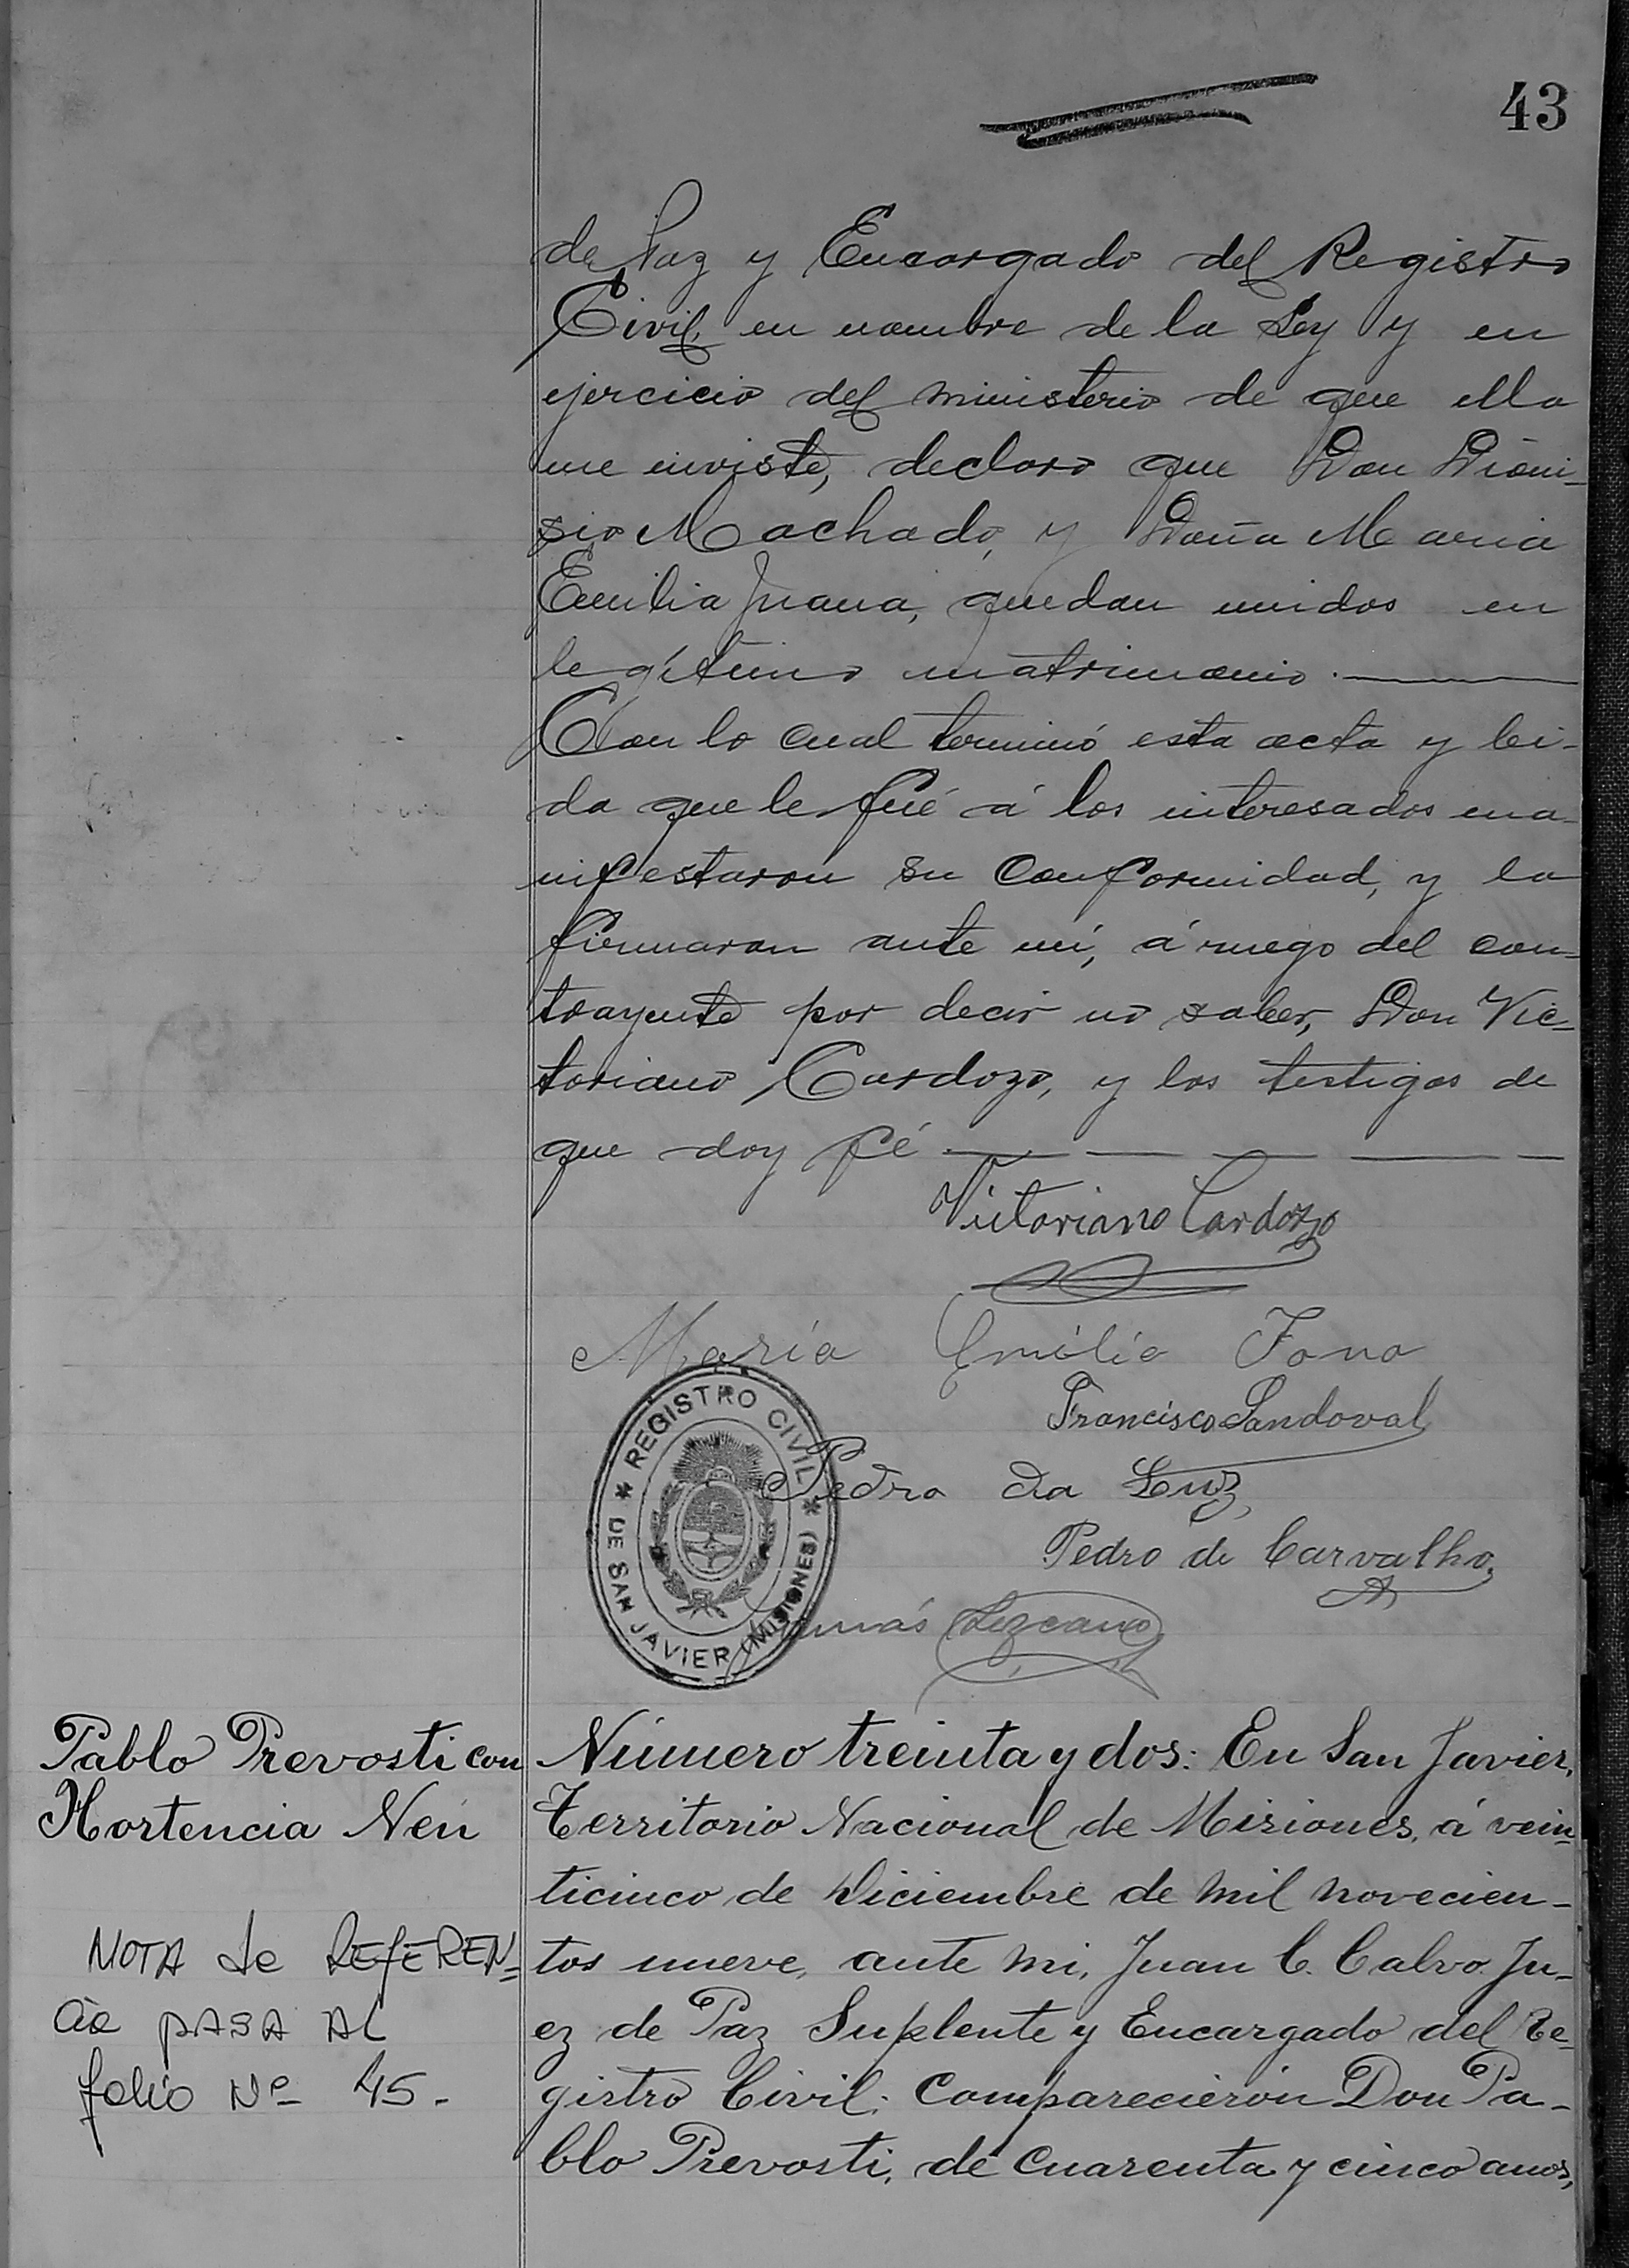 43
de Paz y Encargado del Registro
Civil, en nombre de la Ley y en
ejercicio del ministerio de que ella
me inviste, declaro que Don Dioni-
sio Machado, y Doña Maria
Emilia Juana, quedan unidos en
legítimo matrimonio.
Con lo cual terminó esta acta y lei-
da que le fué á los interesados ma-
nifestaron su conformidad, y la
firmaron ante mí, á ruego del con-
trayente por decir no saber, Don Vic-
toriano Cardozo, y los testigos de
que doy fé
Victoriano Cardozo
María Emilia Fono
Francisco Sandoval
Pedro da Luz
Pedro de Carvalho
Tomás Lezcano
REGISTRO CIVIL
DE SAN JAVIER (MISIONES)
Pablo Prevosti con
Hortencia Neri
NOTA de REFEREN-
cia PASA AL
folio Nº 45.
Número treinta y dos: En San Javier,
Territorio Nacional de Misiones, á vein-
ticinco de Diciembre de mil novecien-
tos nueve, ante mi, Juan C. Calvo Ju-
ez de Paz Suplente y Encargado del Re-
gistro Civil: Comparecieron Don Pa-
blo Prevosti, de cuarenta y cinco anos,